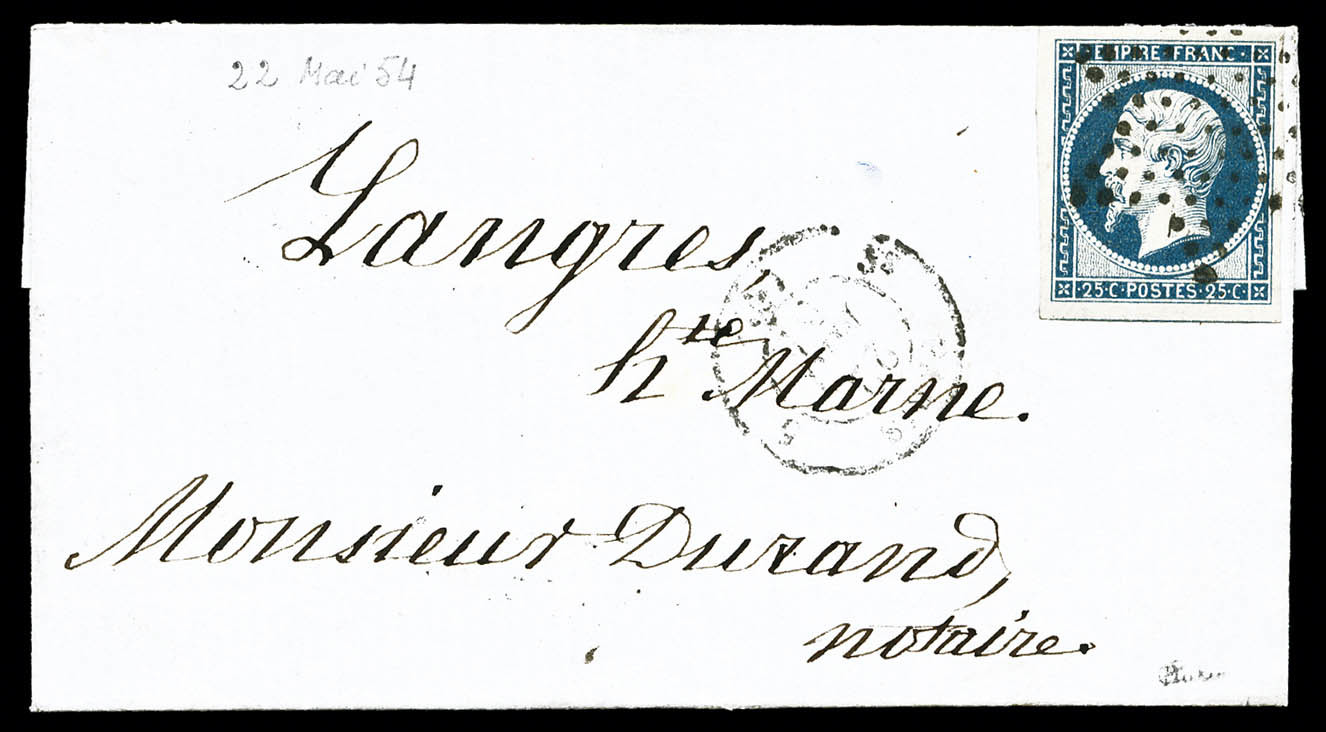 22 Mai 54
EMPIRE FRANC
25·C·POSTES·25·C·
Langres,
hte Marne.
Monsieur Durand,
notaire.